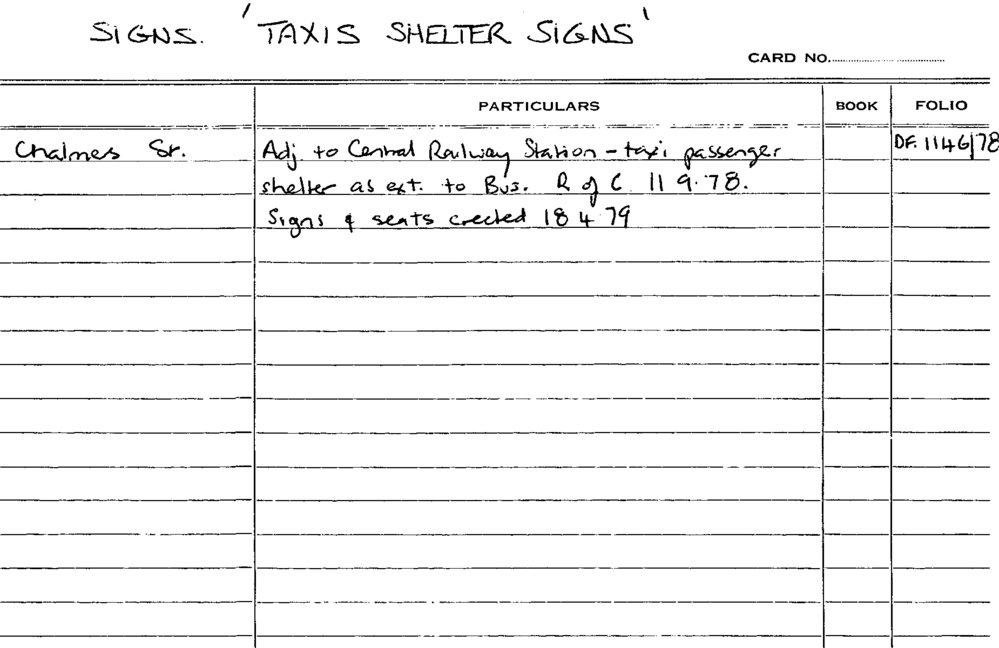 SIGNS. 'TAXIS SHELTER SIGNS'
CARD NO.
PARTICULARS BOOK FOLIO
Chalmes St. Adj to Central Railway Station - taxi passenger DF. 1146/78
shelter as ext. to Bus. R of C 11 9.78.
Signs & seats erected 18 4 79